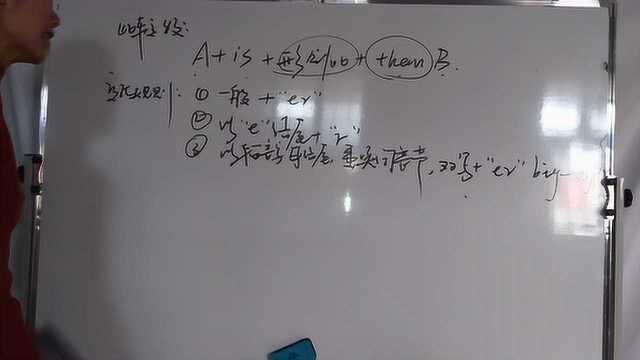 比较级:
A + is + 形容词比 + them B.
变化规则: ① 一般 + "er"
② 以 "e" 结尾 + "r"
③ 以 辅音字母结尾, 重读闭音节, 双写 + "er" big